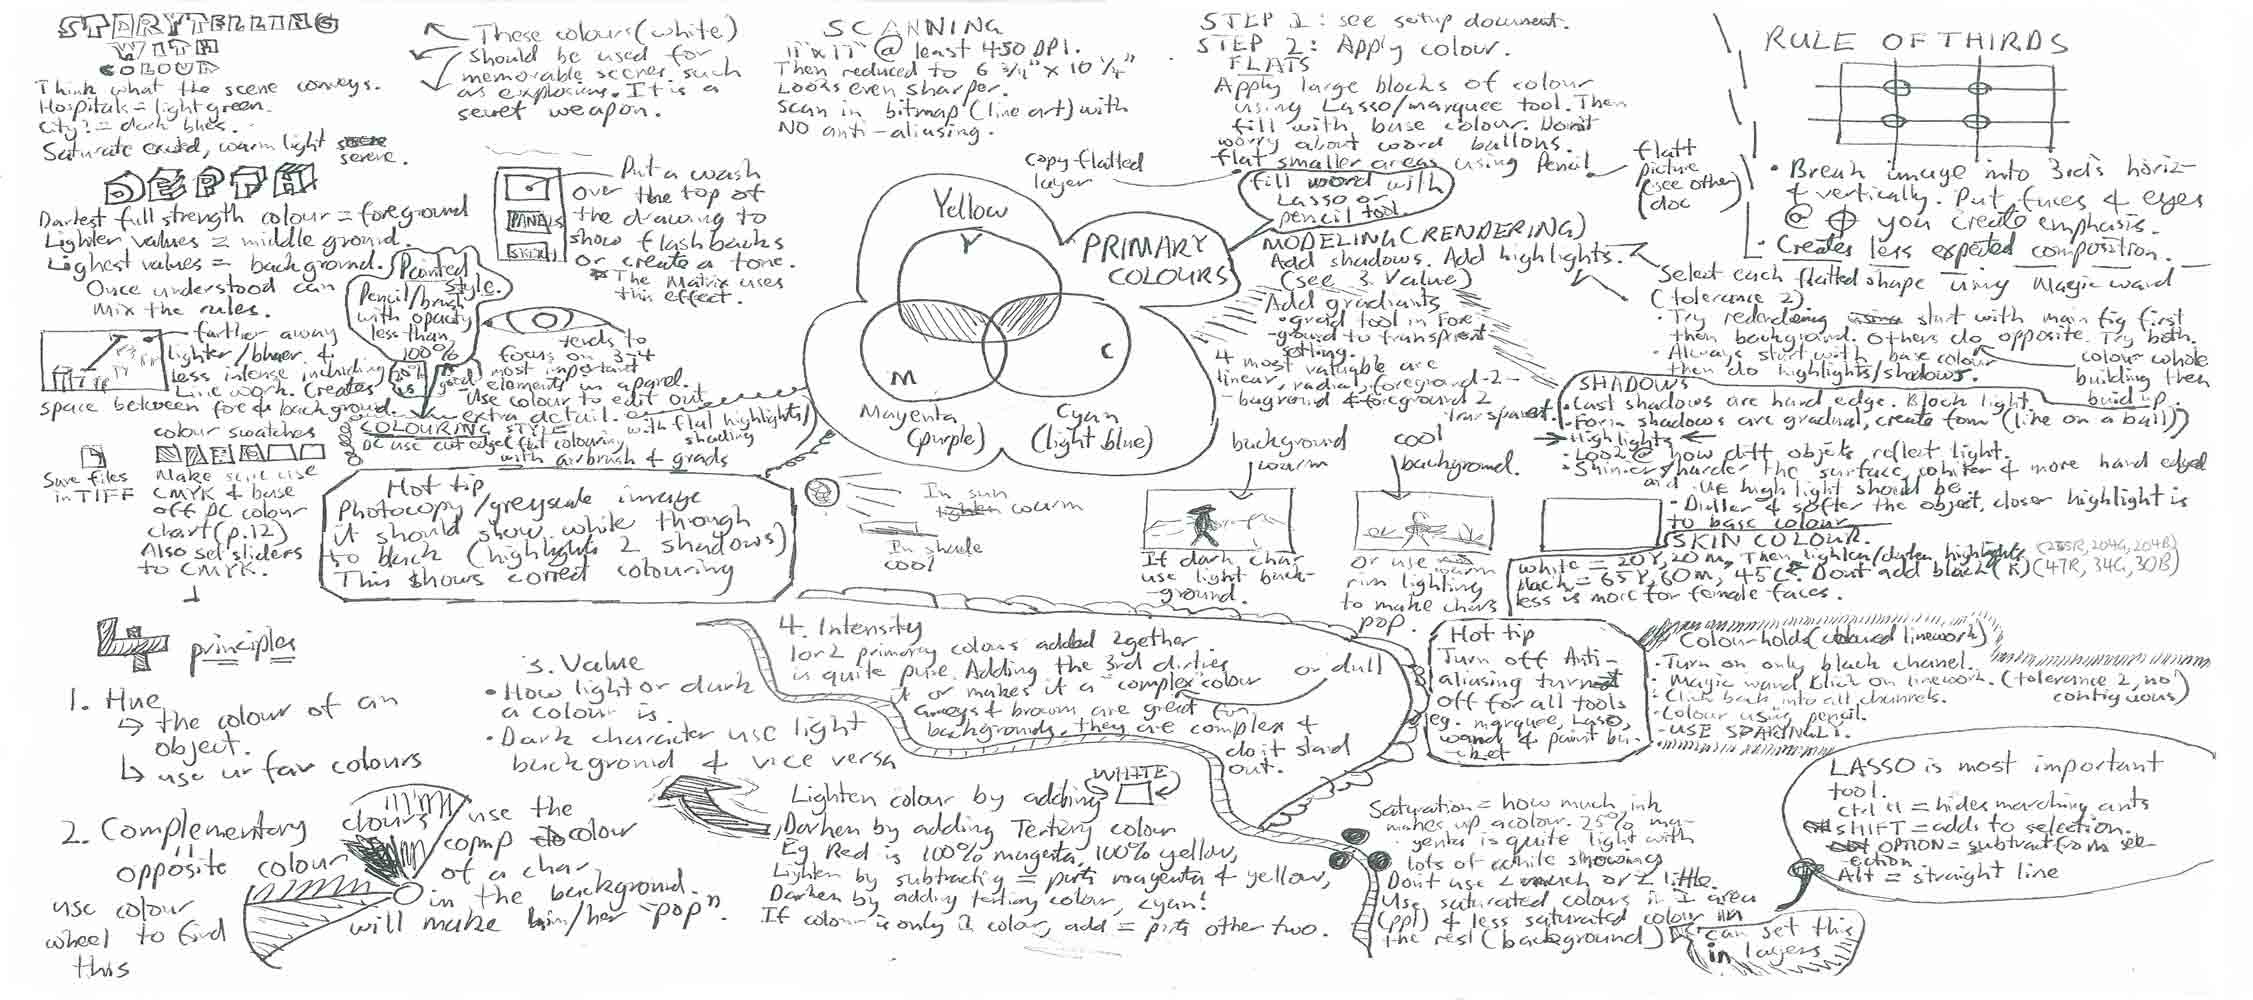 STORYTELLING
WITH
COLOUR
Think what the scene conveys.
Hospitals = light green.
City? = dark blues.
Saturate excited, warm light
serene.
These colours (white)
should be used for
memorable scenes such
as explosions. It is a
secret weapon.
SCANNING
11"x17" @ least 450 DPI.
Then reduced to 6 3/4" x 10 1/4"
Looks even sharper.
Scan in bitmap (line art) with
NO anti-aliasing.
STEP 1: see setup document.
STEP 2: Apply colour.
FLATS
Apply large blocks of colour
using Lasso/marquee tool. Then
fill with base colour. Don't
worry about word ballons.
flat smaller areas using Pencil
copy flatted
layer
fill word with
Lasso or
pencil tool.
flatt
picture
(see other
doc
RULE OF THIRDS
• Break image into 3rds horiz-
& vertically. Put faces & eyes
@ you create emphasis.
• Creates less expected composition.
DEPTH
Darkest full strength colour = foreground
Lighter values = middle ground.
Lighest values = background.
Once understood can
mix the rules.
PANELS
Put a wash
over the top of
the drawing to
show flashbacks
or create a tone.
* The Matrix uses
this effect.
Painted
style.
Pencil/brush
with opacity
less than
100%
farther away
lighter/bluer &
less intense including
Line work. Creates
space between fore & background.
tends to
focus on 3-4
most important
elements in a panel.
Use colour to edit out
extra detail.
COLOURING STYLE
DC use cut edge flat colouring with flat highlights/
shading
with airbrush & grads
Yellow
Y
M
C
Magenta
(purple)
Cyan
(light blue)
PRIMARY
COLOURS
MODELING (RENDERING)
Add shadows. Add highlights.
(see 3. Value)
Add gradiants
• grad tool in fore
-ground to transparent
setting.
4 most valuable are
linear, radial, foreground-2-
-baground & foreground 2
transparent.
Select each flatted shape using Magic wand
(tolerance 2).
• Try rendering start with main fig first
then background. Others do opposite. Try both.
• Always start with base colour
then do highlights/shadows.
colour whole
building then
build up.
SHADOWS
• Cast shadows are hard edge. Block light.
• Form shadows are gradual, create form (like on a ball)
Highlights
• Look @ how diff objets reflect light.
• Shinier/harder the surface, whiter & more hard edged
and the high light should be.
• Duller & softer the object, closer highlight is
to base colour
SKIN COLOUR.
white = 20Y, 20m, Then lighten/darken highlights (255R, 204G, 204B)
black = 65Y, 60m, 45C. Dont add black (K) (47R, 34G, 30B)
less is more for female faces.
colour swatches
Save files
in TIFF
Make sure use
CMYK & base
off DC colour
chart (p.12)
Also set sliders
to CMYK.
Hot tip
Photocopy/greyscale image
it should show white though
to black (highlights 2 shadows)
This shows correct colouring
In sun
warm
In shade
cool
background
warm
cool
background.
If dark char
use light back-
ground.
or use
rim lighting
to make chars
pop.
principles
1. Hue
↳ the colour of an
object.
↳ use ur fair colours
2. Complementary colours
opposite colour
use colour
wheel to find
this
use the
comp colour
of a char
in the background.
will make him/her "pop".
3. Value
• How light or dark
a colour is.
• Dark character use light
background & vice versa
4. Intensity
1 or 2 primary colours added 2gether
is quite pure. Adding the 3rd dirties
it or makes it a "complex" colour
or dull
Greys & brown are great for
backgrounds, they are complex &
do it stand
out.
WHITE
Lighten colour by adding
Darken by adding Tertiary colour
Eg Red is 100% magenta, 100% yellow,
Lighten by subtracting = parts magenta & yellow,
Darken by adding tertiary colour, cyan!
If colour is only 1 colour, add = parts other two.
Hot tip
Turn off Anti-
aliasing
off for all tools
eg. marquee, Laso,
wand & paint bu-
-cket
Colour holds (coloured linework)
• Turn on only black chanel.
• Magic wand klick on linework. (tolerance 2, no
contiguous)
• Click back into all channels.
• Colour using pencil.
- USE SPARINGLY.
Saturation = how much ink
makes up a colour. 25% ma-
-genta is quite light with
lots of white showing
Dont use 2 much or 2 little.
Use saturated colours in 1 area
(ppl) & less saturated colour in
the rest (background)
can set this
in layers
LASSO is most important
tool.
ctrl H = hides marching ants
SHIFT = adds to selection.
OPTION = subtract from sel-
-ection
Alt = straight line